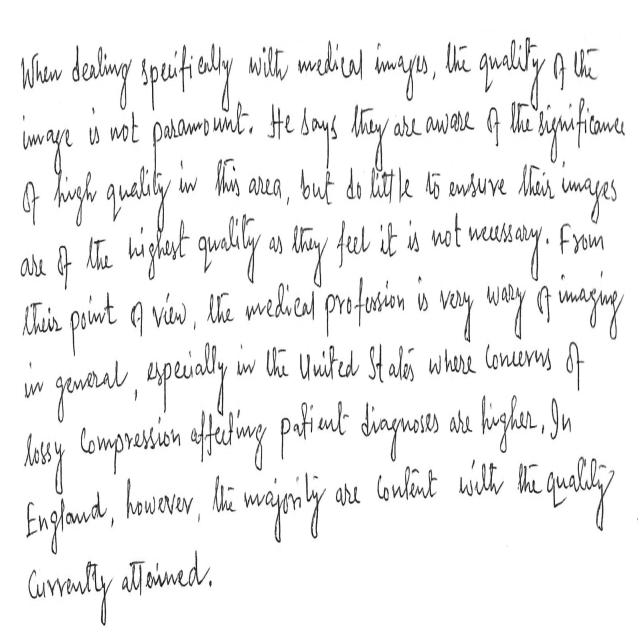 When dealing specifically with medical images, the quality of the
image is not paramount. He says they are aware of the significance
of high quality in this area, but do little to ensure their images
are of the highest quality as they feel it is not necessary. From
their point of view, the medical profession is very wary of imaging
in general, especially in the United States where concerns of
lossy compression affecting patient diagnoses are higher. In
England, however, the majority are content with the quality
currently attained.